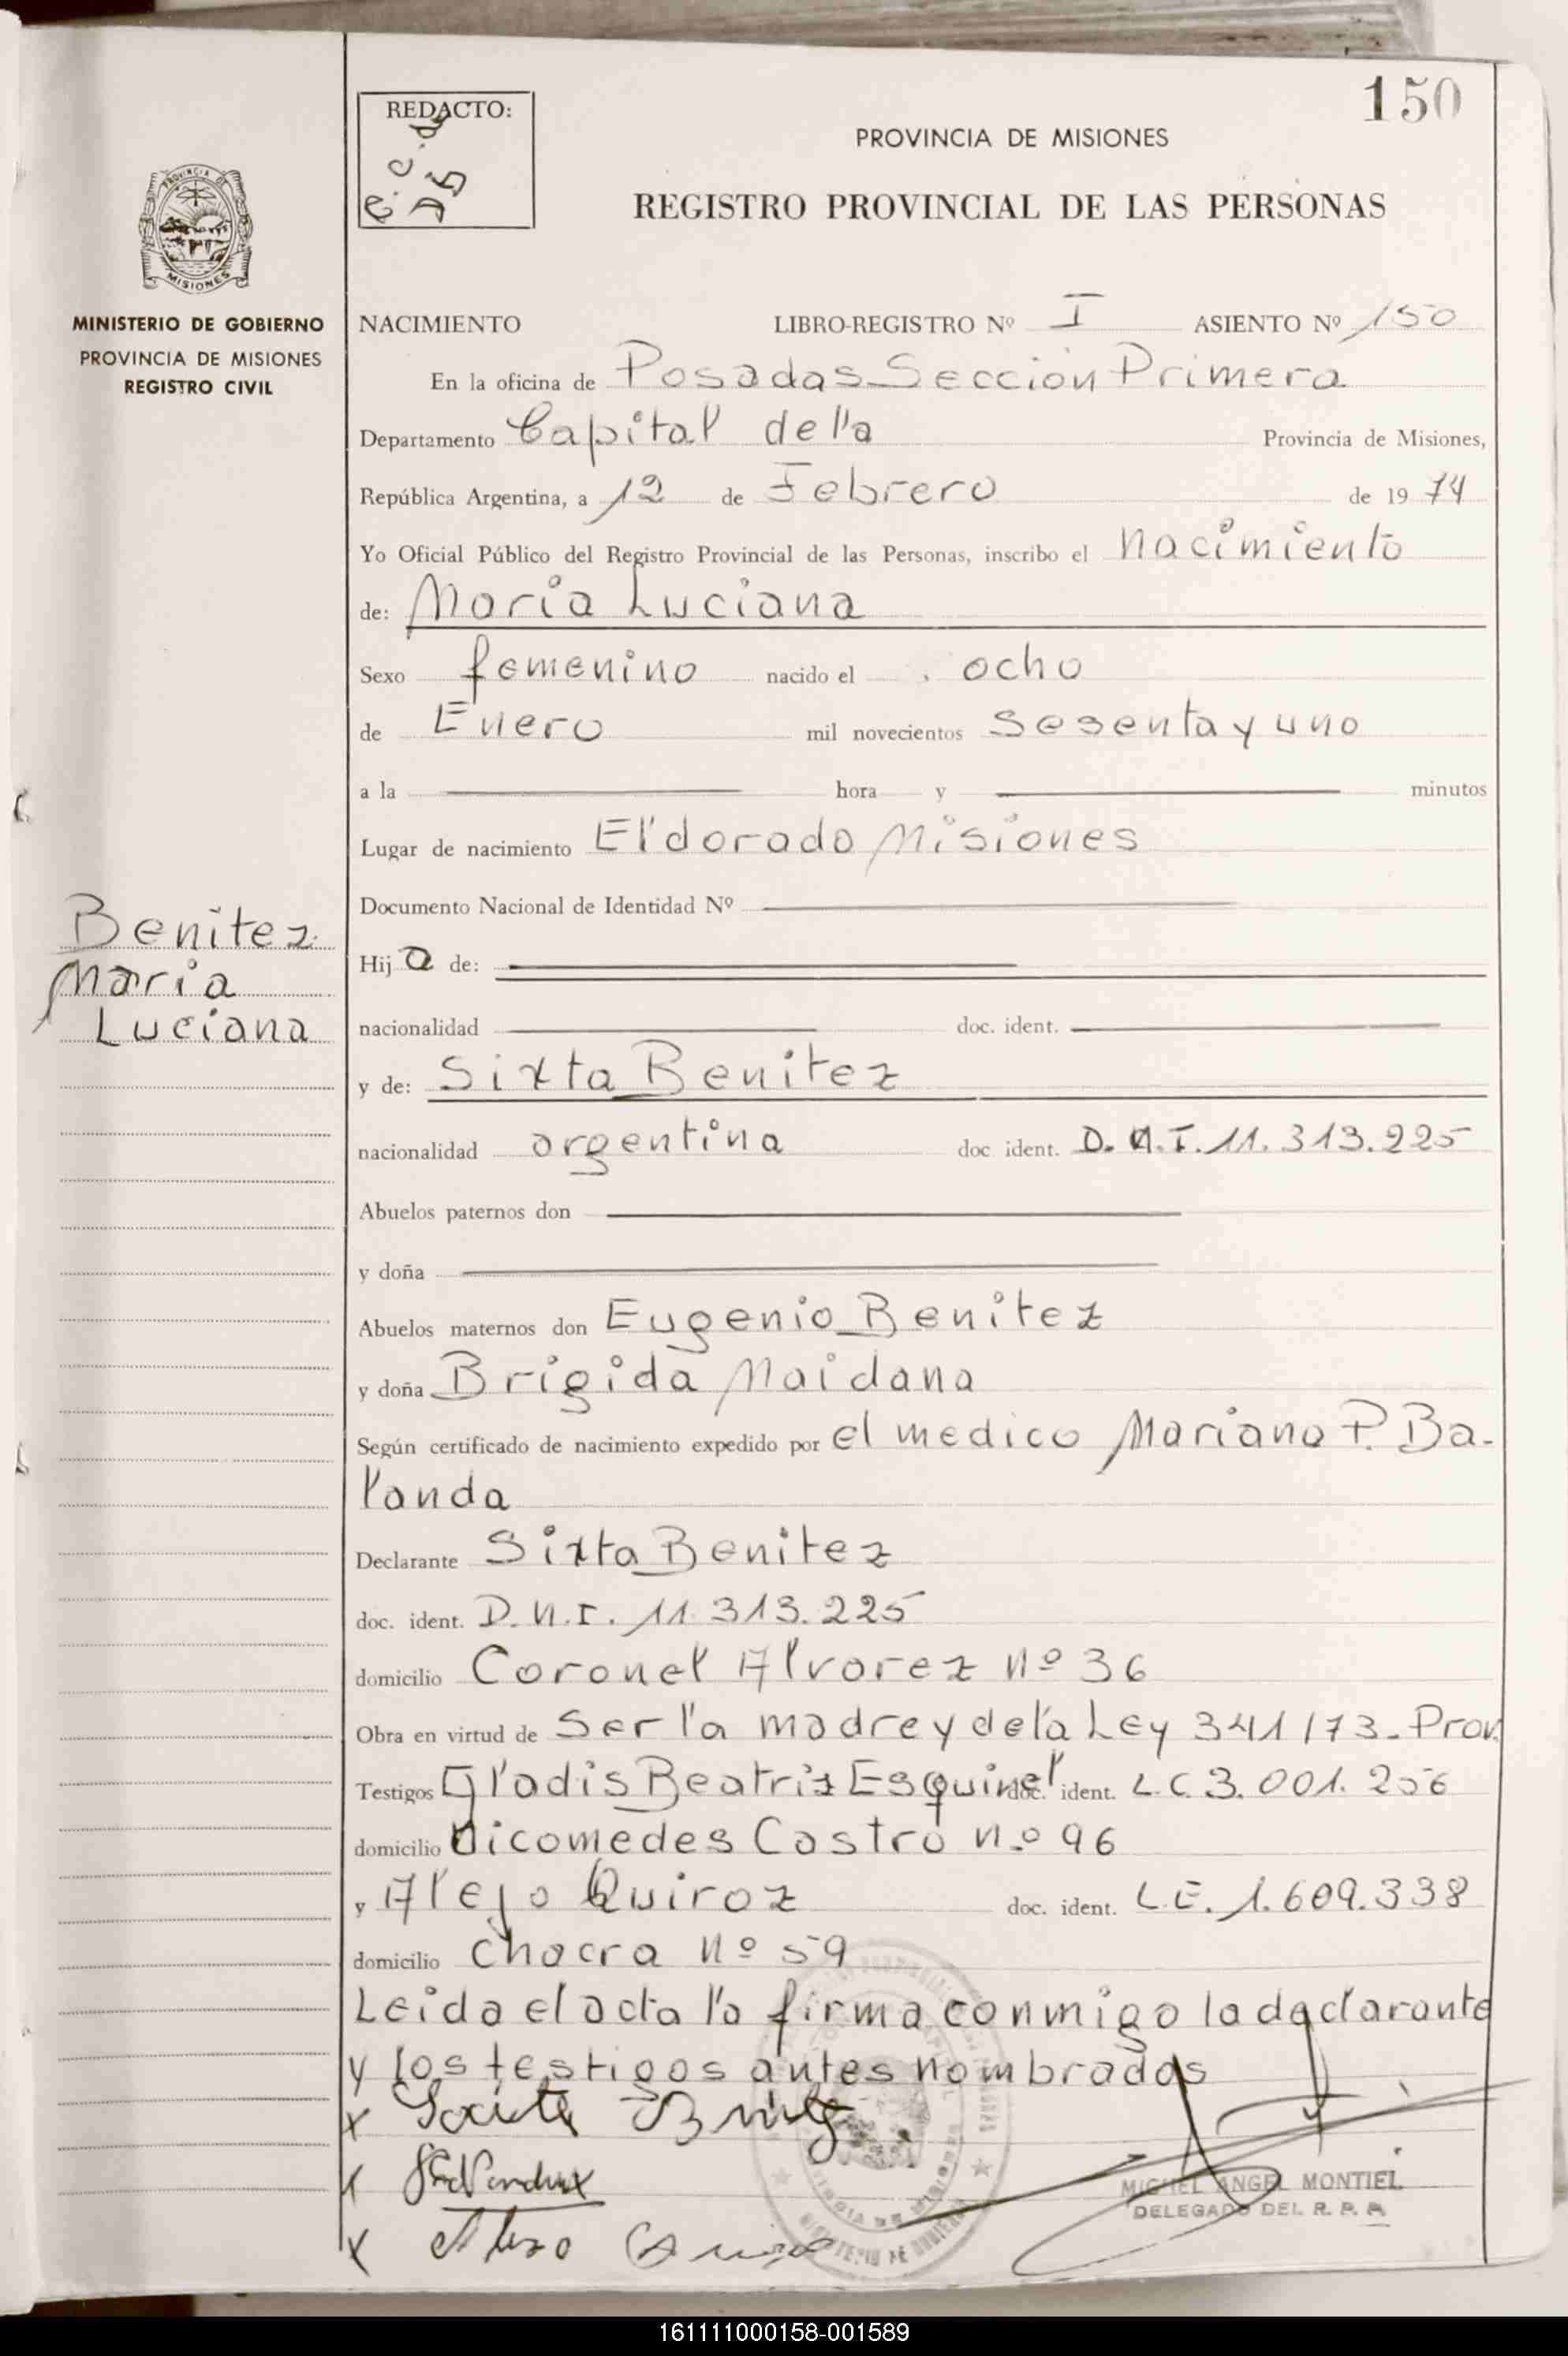 150
REDACTO:
PROVINCIA DE MISIONES
REGISTRO PROVINCIAL DE LAS PERSONAS
PROVINCIA DE
MISIONES
MINISTERIO DE GOBIERNO
PROVINCIA DE MISIONES
REGISTRO CIVIL
NACIMIENTO LIBRO-REGISTRO Nº I ASIENTO Nº 150
En la oficina de Posadas Sección Primera
Departamento Capital de la Provincia de Misiones,
República Argentina, a 12 de Febrero de 1974
Yo Oficial Público del Registro Provincial de las Personas, inscribo el nacimiento
de: María Luciana
Sexo femenino nacido el ocho
de Enero mil novecientos sesenta y uno
a la hora y minutos
Lugar de nacimiento Eldorado Misiones
Documento Nacional de Identidad Nº
Benitez
María
Luciana
Hija de:
nacionalidad doc. ident.
y de: Sixta Benitez
nacionalidad argentina doc ident. D.N.I. 11.313.225
Abuelos paternos don
y doña
Abuelos maternos don Eugenio Benitez
y doña Brigida Maidana
Según certificado de nacimiento expedido por el medico Mariano P. Ba-
landa
Declarante Sixta Benitez
doc. ident. D.N.I. 11.313.225
domicilio Coronel Alvarez nº 36
Obra en virtud de ser la madre y de la Ley 341/73-Prov.
Testigos Gladis Beatriz Esquivel doc. ident. L.C. 3.001.256
domicilio Nicomedes Castro nº 96
y Alejo Quiroz doc. ident. L.E. 1.609.338
domicilio chacra nº 59
Leida el acta la firma conmigo la declarante
y los testigos antes nombrados
MIGUEL ANGEL MONTIEL
DELEGADO DEL R. P. P.
161111000158-001589